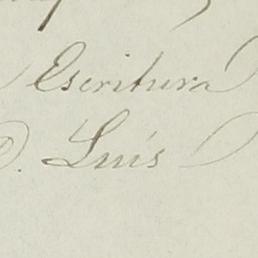 Escritura
D. Luís